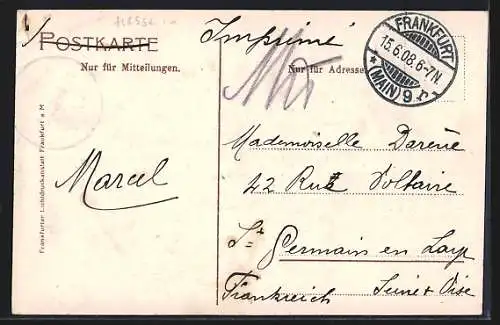 HESSE
POSTKARTE
Imprimé
Nur für Mitteilungen.
Nur für Adresse
FRANKFURT
15.6.08.6-7N.
* (MAIN) 9 r
Frankfurter Lichtdruckanstalt Frankfurt a M
Marcel
Mademoiselle
42 Rue Voltaire
St Germain en Laye
Frankreich Seine & Oise